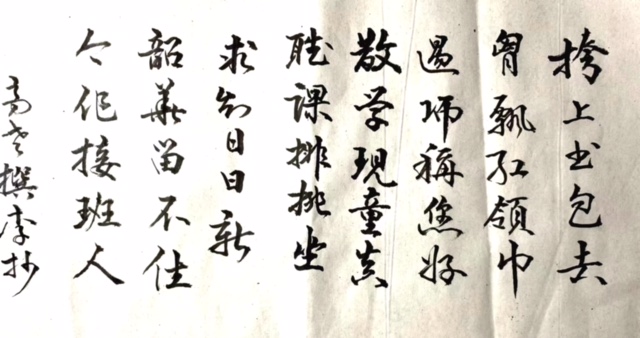 挎上书包去
胷飘红领巾
遇师称您好
散学现童真
聴课排排坐
求知日日新
韶华留不住
今作接班人
高老撰李抄